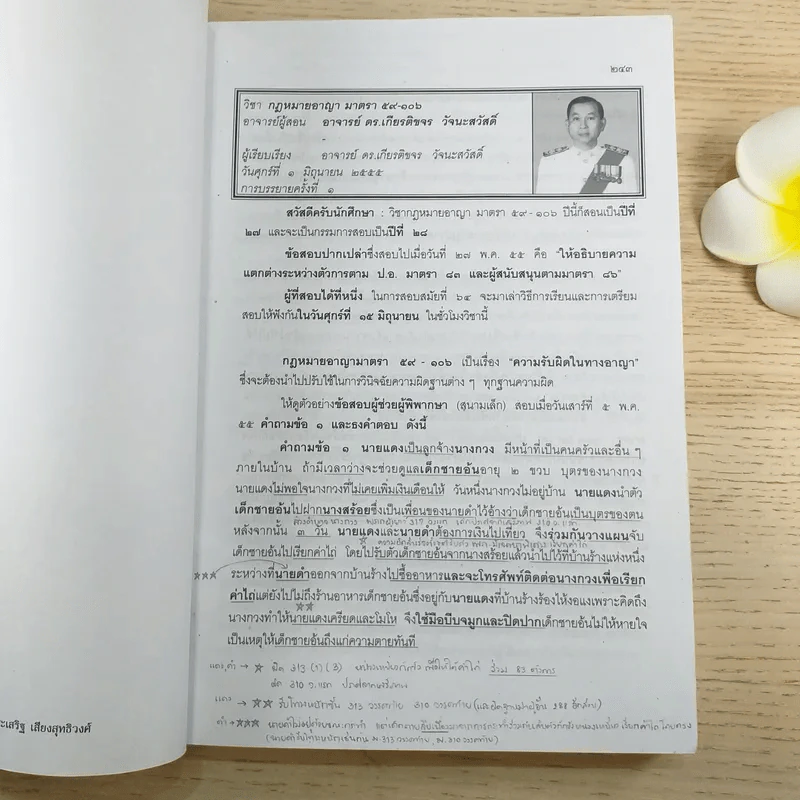 ๒๔๓
วิชา กฎหมายอาญา มาตรา ๕๙-๑๐๖
อาจารย์ผู้สอน อาจารย์ ดร.เกียรติขจร วัจนะสวัสดิ์
ผู้เรียบเรียง อาจารย์ ดร.เกียรติขจร วัจนะสวัสดิ์
วันศุกร์ที่ ๑ มิถุนายน ๒๕๕๕
การบรรยายครั้งที่ ๑
สวัสดีครับนักศึกษา : วิชากฎหมายอาญา มาตรา ๕๙-๑๐๖ ปีนี้ก็สอนเป็นปีที่
๒๗ และจะเป็นกรรมการสอบเป็นปีที่ ๒๘
ข้อสอบปากเปล่าซึ่งสอบไปเมื่อวันที่ ๒๗ พ.ค. ๕๕ คือ "ให้อธิบายความ
แตกต่างระหว่างตัวการตาม ป.อ. มาตรา ๘๓ และผู้สนับสนุนตามมาตรา ๘๖"
ผู้ที่สอบได้ที่หนึ่ง ในการสอบสมัยที่ ๖๔ จะมาเล่าวิธีการเรียนและการเตรียม
สอบให้ฟังกันในวันศุกร์ที่ ๑๕ มิถุนายน ในชั่วโมงวิชานี้
กฎหมายอาญามาตรา ๕๙ - ๑๐๖ เป็นเรื่อง "ความรับผิดในทางอาญา"
ซึ่งจะต้องนำไปปรับใช้ในการวินิจฉัยความผิดฐานต่าง ๆ ทุกฐานความผิด
ให้ดูตัวอย่างข้อสอบผู้ช่วยผู้พิพากษา (สนามเล็ก) สอบเมื่อวันเสาร์ที่ ๕ พ.ค.
๕๕ คำถามข้อ ๑ และธงคำตอบ ดังนี้
คำถามข้อ ๑ นายแดงเป็นลูกจ้างนางกวง มีหน้าที่เป็นคนครัวและอื่น ๆ
ภายในบ้าน ถ้ามีเวลาว่างจะช่วยดูแลเด็กชายอ้นอายุ ๒ ขวบ บุตรของนางกวง
นายแดงไม่พอใจนางกวงที่ไม่เคยเพิ่มเงินเดือนให้ วันหนึ่งนางกวงไม่อยู่บ้าน นายแดงนำตัว
เด็กชายอ้นไปฝากนางสร้อยซึ่งเป็นเพื่อนของนายดำไว้อ้างว่าเด็กชายอ้นเป็นบุตรของตน
หลังจากนั้น ๓ วัน นายแดงและนายดำต้องการเงินไปเที่ยว จึงร่วมกันวางแผนจับ
เด็กชายอ้นไปเรียกค่าไถ่ โดยไปรับตัวเด็กชายอ้นจากนางสร้อยแล้วนำไปไว้ที่บ้านร้างแห่งหนึ่ง
ระหว่างที่นายดำออกจากบ้านร้างไปซื้ออาหารและจะโทรศัพท์ติดต่อนางกวงเพื่อเรียก
ค่าไถ่แต่ยังไปไม่ถึงร้านอาหารเด็กชายอ้นซึ่งอยู่กับนายแดงที่บ้านร้างร้องไห้งอแงเพราะคิดถึง
นางกวงทำให้นายแดงเครียดและโมโห จึงใช้มือบีบจมูกและปิดปากเด็กชายอ้นไม่ให้หายใจ
เป็นเหตุให้เด็กชายอ้นถึงแก่ความตายทันที
แดง,ดำ → ☆ ผิด 313 (1) (3) เพื่อให้ได้ค่าไถ่ ร่วม 83 ตัวการ
ผิด 310 ว.แรก
แดง → ☆☆ รับโทษหนักขึ้น 313 วรรคท้าย 310 วรรคท้าย
ดำ → ☆☆☆
ะเสริฐ เสียงสุทธิวงศ์